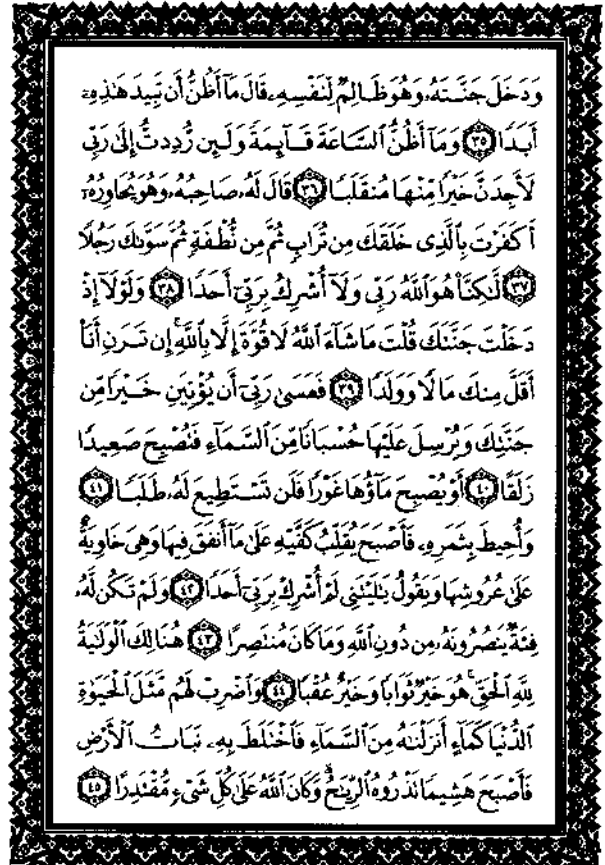 وَدَخَلَ جَنَّتَهُۥ وَهُوَ ظَالِمٌ لِّنَفْسِهِۦ قَالَ مَآ أَظُنُّ أَن تَبِيدَ هَٰذِهِۦٓ
أَبَدًا ٣٥ وَمَآ أَظُنُّ ٱلسَّاعَةَ قَآئِمَةً وَلَئِن رُّدِدتُّ إِلَىٰ رَبِّي
لَأَجِدَنَّ خَيْرًا مِّنْهَا مُنقَلَبًا ٣٦ قَالَ لَهُۥ صَاحِبُهُۥ وَهُوَ يُحَاوِرُهُۥٓ
أَكَفَرْتَ بِٱلَّذِي خَلَقَكَ مِن تُرَابٍ ثُمَّ مِن نُّطْفَةٍ ثُمَّ سَوَّىٰكَ رَجُلًا
٣٧ لَّٰكِنَّا۠ هُوَ ٱللَّهُ رَبِّي وَلَآ أُشْرِكُ بِرَبِّيٓ أَحَدًا ٣٨ وَلَوْلَآ إِذْ
دَخَلْتَ جَنَّتَكَ قُلْتَ مَا شَآءَ ٱللَّهُ لَا قُوَّةَ إِلَّا بِٱللَّهِۚ إِن تَرَنِ أَنَا۠
أَقَلَّ مِنكَ مَالًا وَوَلَدًا ٣٩ فَعَسَىٰ رَبِّيٓ أَن يُؤْتِيَنِ خَيْرًا مِّن
جَنَّتِكَ وَيُرْسِلَ عَلَيْهَا حُسْبَانًا مِّنَ ٱلسَّمَآءِ فَتُصْبِحَ صَعِيدًا
زَلَقًا ٤٠ أَوْ يُصْبِحَ مَآؤُهَا غَوْرًا فَلَن تَسْتَطِيعَ لَهُۥ طَلَبًا ٤١
وَأُحِيطَ بِثَمَرِهِۦ فَأَصْبَحَ يُقَلِّبُ كَفَّيْهِ عَلَىٰ مَآ أَنفَقَ فِيهَا وَهِيَ خَاوِيَةٌ
عَلَىٰ عُرُوشِهَا وَيَقُولُ يَٰلَيْتَنِي لَمْ أُشْرِكْ بِرَبِّيٓ أَحَدًا ٤٢ وَلَمْ تَكُن لَّهُۥ
فِئَةٌ يَنصُرُونَهُۥ مِن دُونِ ٱللَّهِ وَمَا كَانَ مُنتَصِرًا ٤٣ هُنَالِكَ ٱلْوَلَٰيَةُ
لِلَّهِ ٱلْحَقِّۚ هُوَ خَيْرٌ ثَوَابًا وَخَيْرٌ عُقْبًا ٤٤ وَٱضْرِبْ لَهُم مَّثَلَ ٱلْحَيَوٰةِ
ٱلدُّنْيَا كَمَآءٍ أَنزَلْنَٰهُ مِنَ ٱلسَّمَآءِ فَٱخْتَلَطَ بِهِۦ نَبَاتُ ٱلْأَرْضِ
فَأَصْبَحَ هَشِيمًا تَذْرُوهُ ٱلرِّيَٰحُۗ وَكَانَ ٱللَّهُ عَلَىٰ كُلِّ شَيْءٍ مُّقْتَدِرًا ٤٥